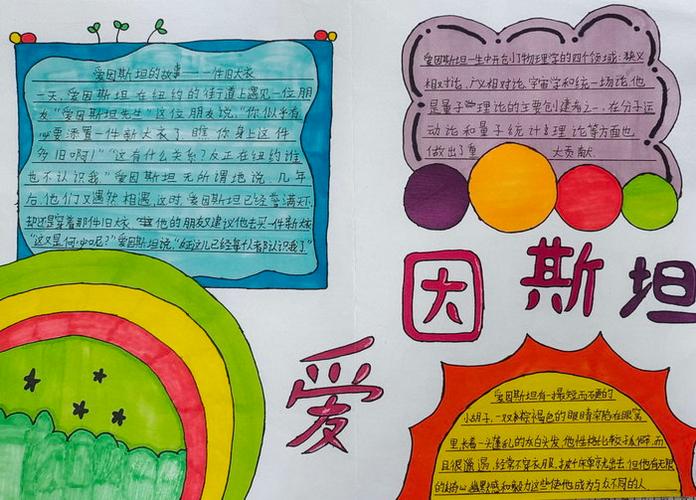 爱因斯坦的故事——一件旧大衣
一天,爱因斯坦在纽约的街道上遇见一位朋
友"爱因斯坦先生"这位朋友说,"你似乎有
必要添置一件新大衣了,瞧,你身上这件
多旧啊!""这有什么关系?反正在纽约谁
也不认识我"爱因斯坦无所谓地说,几年
后,他们又偶然相遇,这时,爱因斯坦已经誉满天下,
却还是穿着那件旧大衣,他的朋友又建议他去买一件新大衣
"这又是何必呢?"爱因斯坦说,"反正这儿已经每个人都认识我了"
爱因斯坦一生中开创了物理学的四个领域:狭义
相对论、广义相对论、宇宙学和统一场论,他
是量子理论的主要创建者之一,在分子运
动论和量子统计理论等方面也
做出了重大贡献.
爱因斯坦
爱因斯坦有一撮短而不硬的
小胡子,一双棕褐色的眼睛深陷在眼窝
里,长着一头蓬乱的灰白头发,他性格比较孤僻,而
且很邋遢,经常不穿衣服,披个床单就出去,但他有无限
的幽默感和毅力这些使他成为与众不同的人